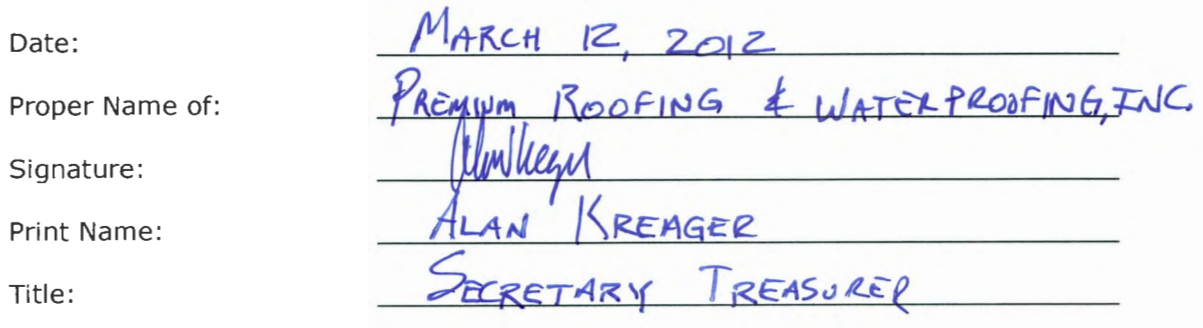 Date: MARCH 12, 2012
Proper Name of: PREMIUM ROOFING & WATERPROOFING, INC.
Signature:
Print Name: ALAN KREAGER
Title: SECRETARY TREASURER